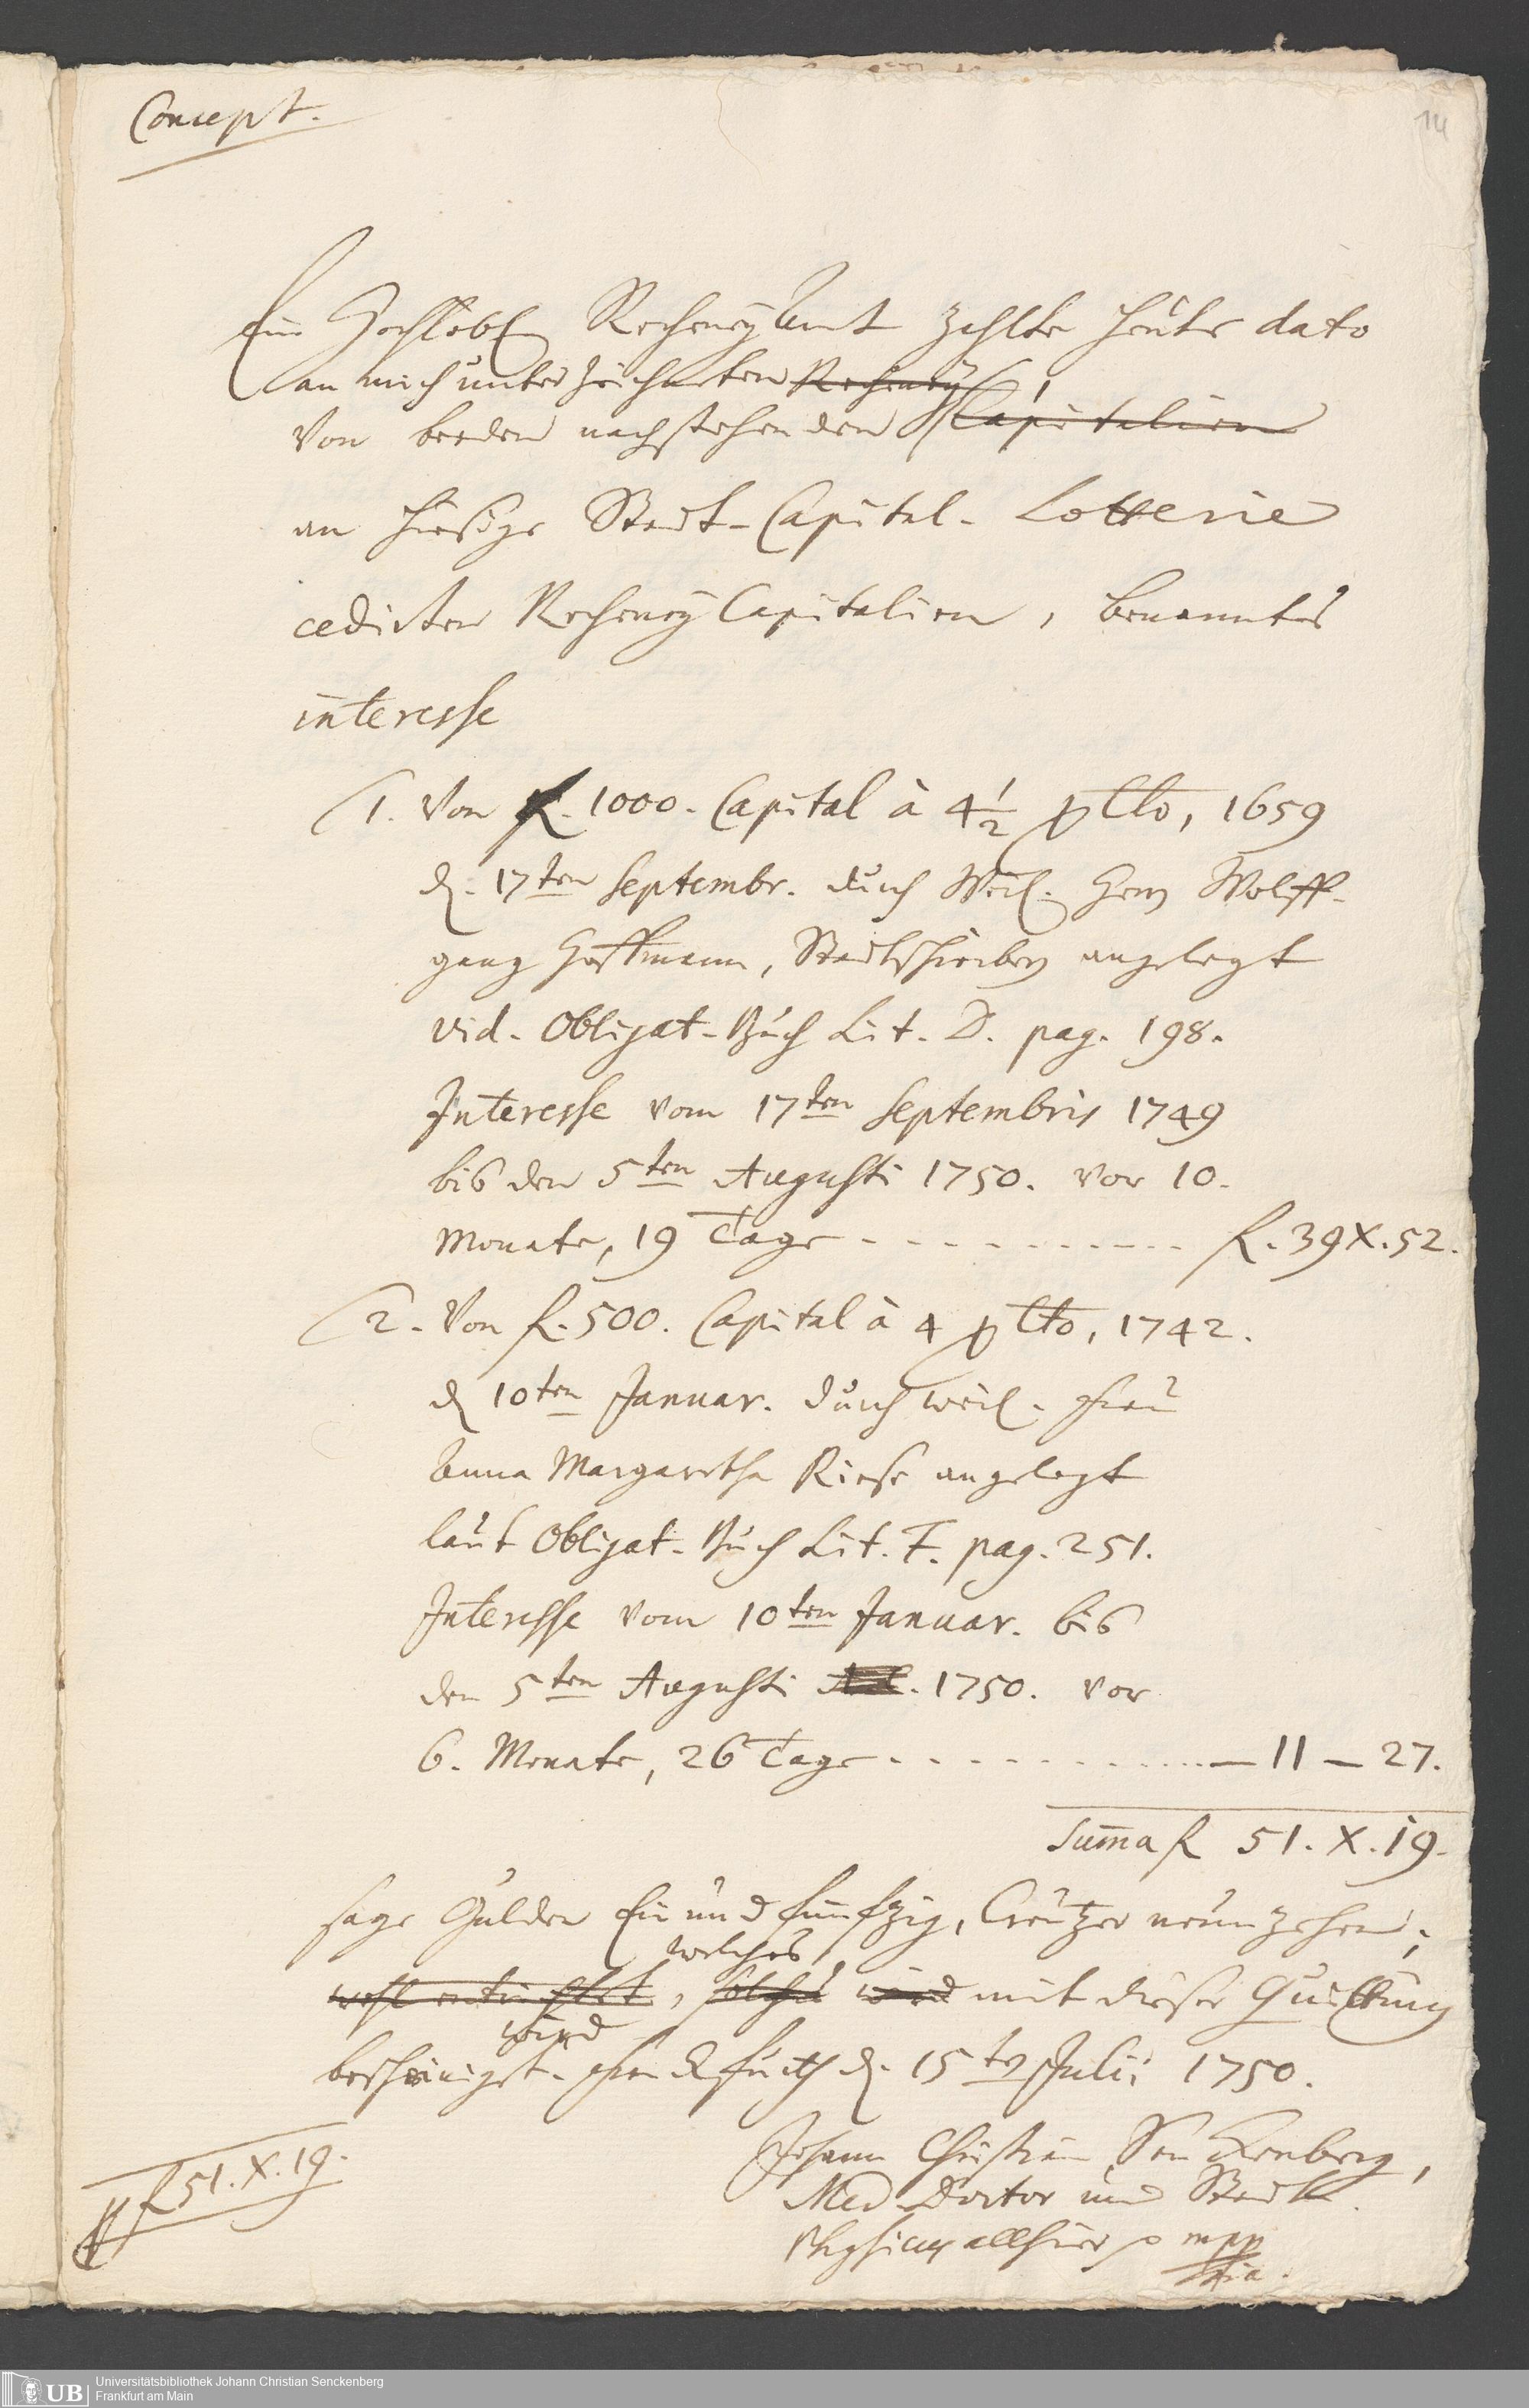 Concept.
14
Ein Hochlöbl Recheney Amt zahlte heute dato
an mich unterzeichneten Recheney
von beeden nachstehenden Capitalien
an hießige Stadt-Capital-Lotterie
cedirten Recheney Capitalien, benanntes
interesse
1. Von fl. 1000. Capital à 4 1/2 p Cto, 1659
d. 17ten Septembr. durch Weil. Herrn Wolff-
gang Hoffmann, Stadtschreiber angelegt
vid. Obligat-Buch Lit. D. pag. 198.
Interesse vom 17ten Septembris 1749
biß den 5ten Augusti 1750. vor 10.
Monate, 19 Tage - - - - - - - - - - fl. 39 X. 52.
2. Von fl. 500. Capital à 4 p Cto, 1742.
d 10ten Januar. durch weil. Frau
Anna Margaretha Riese angelegt
laut Obligat-Buch Lit. F. pag. 251.
Interesse vom 10ten Januar. biß
den 5ten Augusti 1750. vor
6. Monate, 26 Tage - - - - - - - - - - — 11 — 27.
Suma fl 51. X. 19.
sage Gulden Ein und funfzig, Creutzer neunzehen;
welches
wohl entrichtet, solches wird mit dieser Quittung
wird
bescheiniget. Franckfurth d. 15ten Julii 1750.
Johann Christian Senckenberg,
Med. Doctor und Stadt
Physicus allhier mpp
ria.
fl 51. X. 19.
UB Universitätsbibliothek Johann Christian Senckenberg
Frankfurt am Main